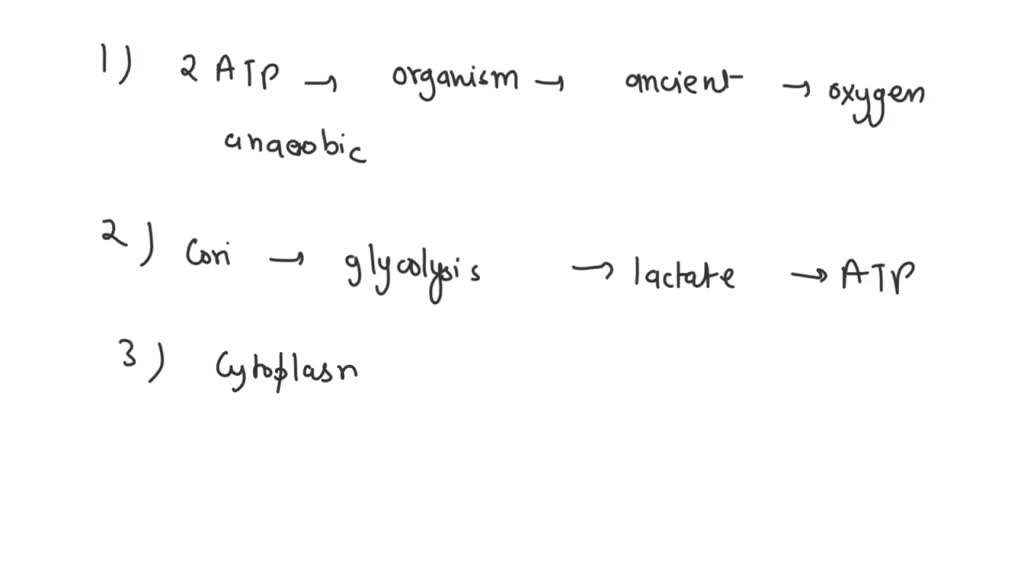 1) 2 ATP → organism → ancient → oxygen
anaeobic
2) Cori → glycolysis → lactate → ATP
3) Cytoplasn